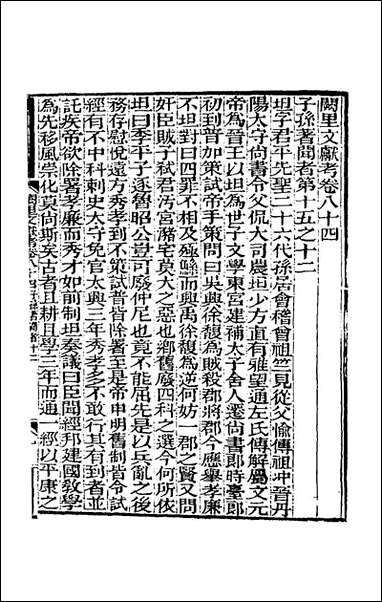 闕里文獻考卷八十四
子孫著聞者第十五之十二
坦字君平先聖二十六代孫居會稽曾祖竺見從父愉傳祖沖晉丹
陽太守尚書令父侃大司農坦少方直有雅望通左氏傳解屬文元
帝為晉王以坦為世子文學東宮建補太子舍人遷尚書郎時臺郎
初到普加策試帝手策問曰吳興徐馥為賊殺郡將郡今應舉孝廉
不坦對曰四罪不相及殛鯀而興禹徐馥為逆何妨一郡之賢又問
奸臣賊子弒君汚宮瀦宅莫大之惡也鄉舊廢四科之選今何所依
坦曰季平子逐魯昭公豈可廢仲尼也竟不能屈先是以兵亂之後
務存慰悅遠方秀孝到不策試普皆除署至是帝申明舊制皆令試
經有不中科刺史太守免官太興三年秀孝多不敢行其有到者並
託疾帝欲除署孝廉而秀才如前制坦奏議曰臣聞經邦建國敎學
為先移風崇化莫尚斯矣古者且耕且學三年而通一經以平康之